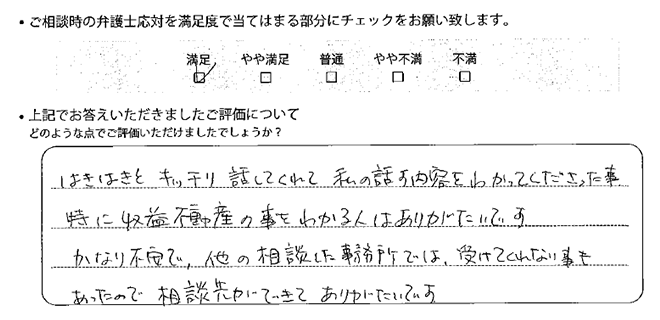 ・ご相談時の弁護士応対を満足度で当てはまる部分にチェックをお願い致します。
満足 やや満足 普通 やや不満 不満
・上記でお答えいただきましたご評価について
どのような点でご評価いただけましたでしょうか？
はきはきと キッチリ 話してくれて 私の話す内容をわかってくださった事
特に収益不動産の事をわかる人はありがたいです
かなり不安で、他の相談した事務所では、受けてくれない事も
あったので 相談先ができて ありがたいです